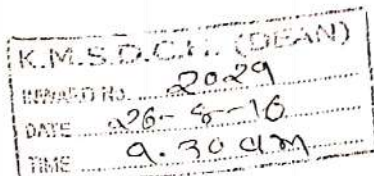 K.M.S.D.C.H. (DEAN)
INWARD No. 2029
DATE 26-5-16
TIME 9.30 am